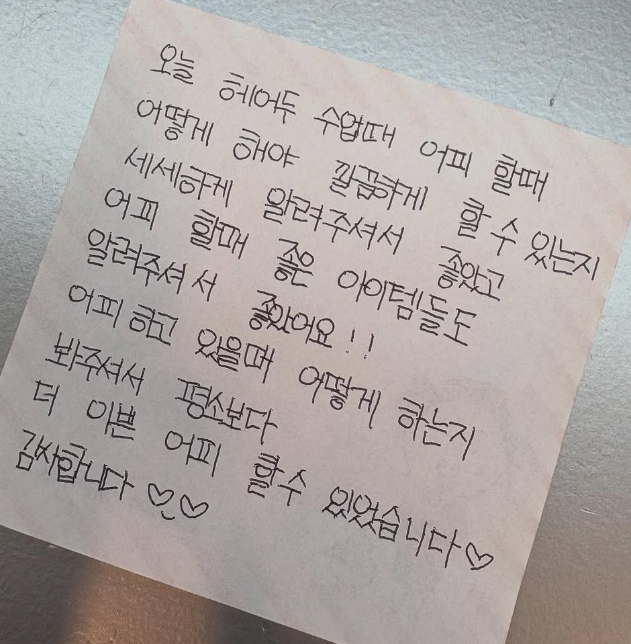 오늘 헤어두 수업때 어피 할때
어떻게 해야 깔끔하게 할 수 있는지
세세하게 알려주셔서 좋았고
어피 할때 좋은 아이템들도
알려주셔서 좋았어요!!
어피 하고 있을때 어떻게 하는지
봐주셔서 평소보다
더 이쁜 어피 할수 있었습니다♡
감사합니다 ♡♡